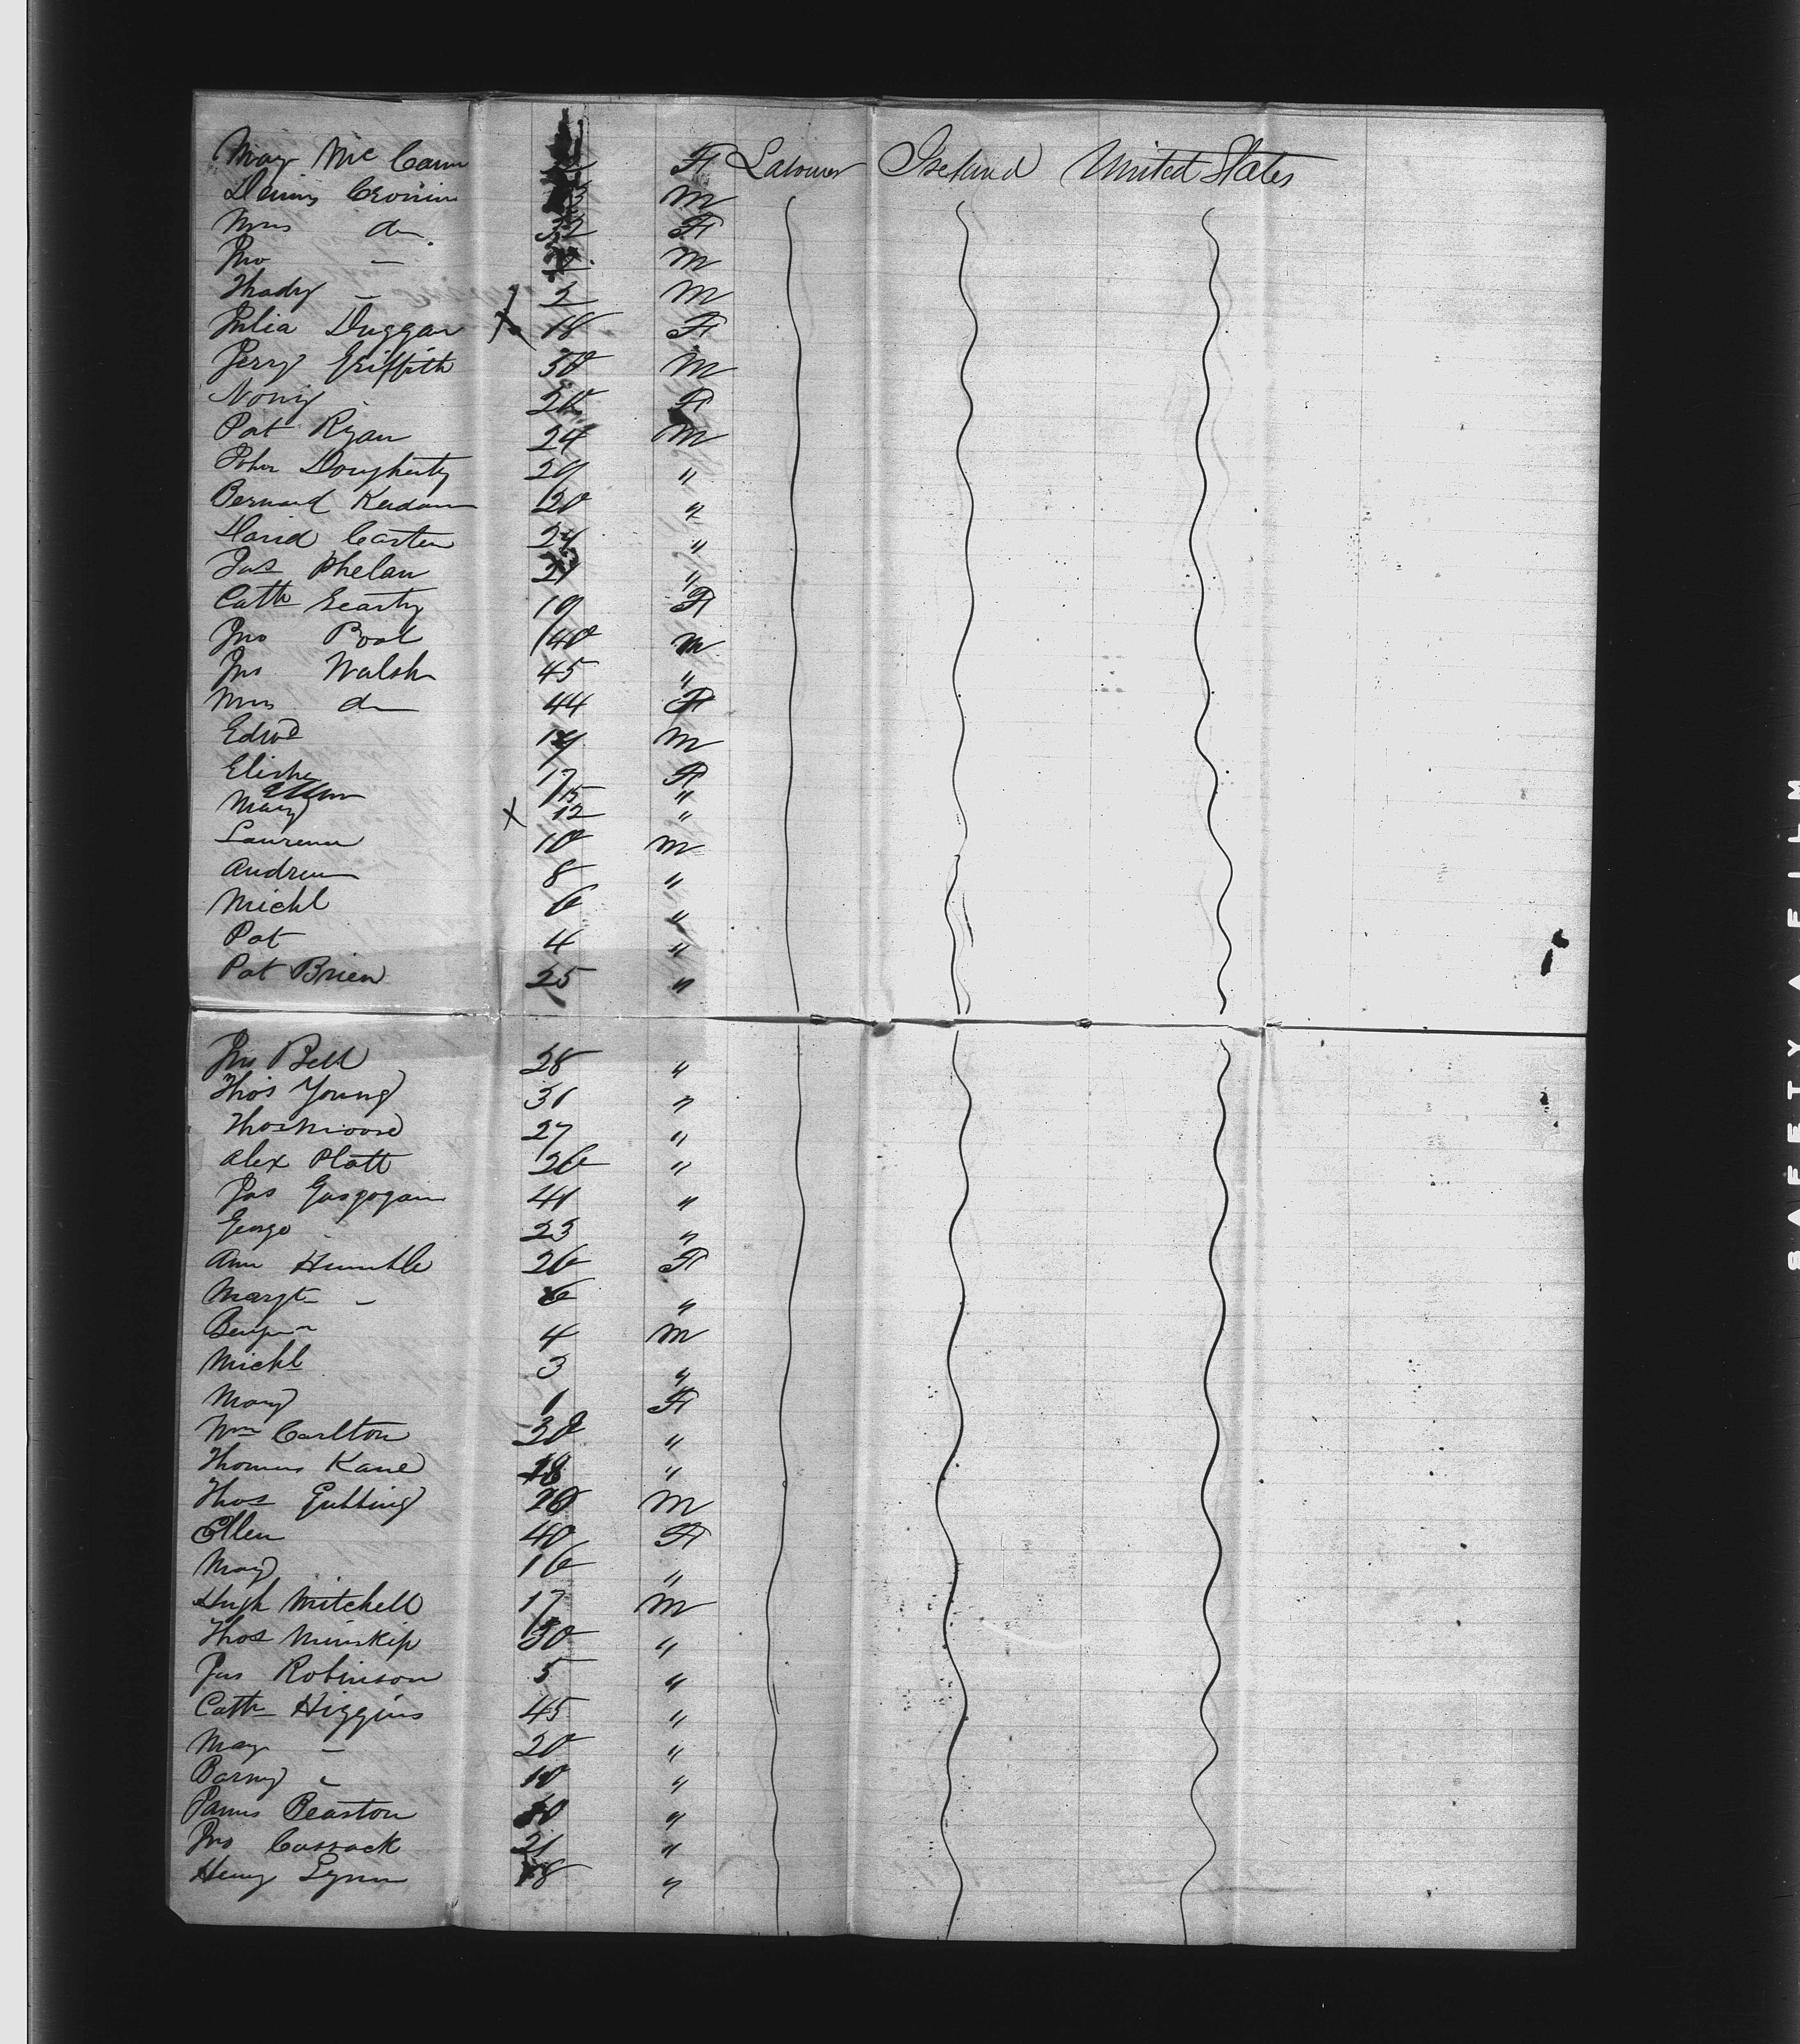 Mary McCann F Labourer Ireland United States
Dennis Cronin M
Mrs do 32 F
Jno — M
Thady — 2 M
Julia Duggan X 18 F
Jerry Griffith 30 M
F
Pat Ryan 24 M
John Dougherty 29 "
Bernard 20 "
David Carten 24 "
Jas Phelan "
Cath Gearty 19 F
Jno 40 M
Jno Walsh 45 "
Mrs do 44 F
Edwd M
17 F
Ellen 15 "
Mary X 12 "
Laurence 10 M
Andrew 8 "
Michl 6 "
Pat 4 "
Pat Brien 25 "
Jno Bell 28 "
Thos Young 31 "
Thos Moore 27 "
Alex Platt 26 "
Jas 41 "
George 23 "
Ann Humble 26 F
Margt — 6 "
4 M
Michl 3 "
Mary 1 F
Wm Carlton 30 "
Thomas Kane 18 "
Thos M
Ellen 40 F
Mary 16 "
Hugh Mitchell 17 M
Thos 30 "
Jas Robinson 5 "
Cath Higgins 45 "
Mary — 20 "
Barny 10 "
James Beaston "
Jno Cossack 21 "
Henry Lynn 18 "
SAFETY FILM